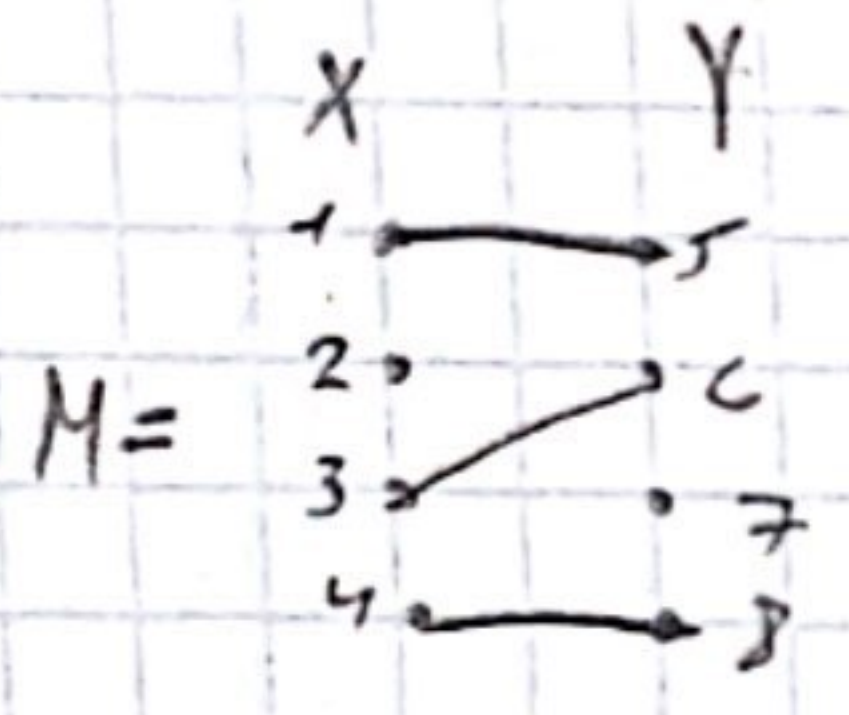 X Y
1 5
2 6
M=
3 7
4 8